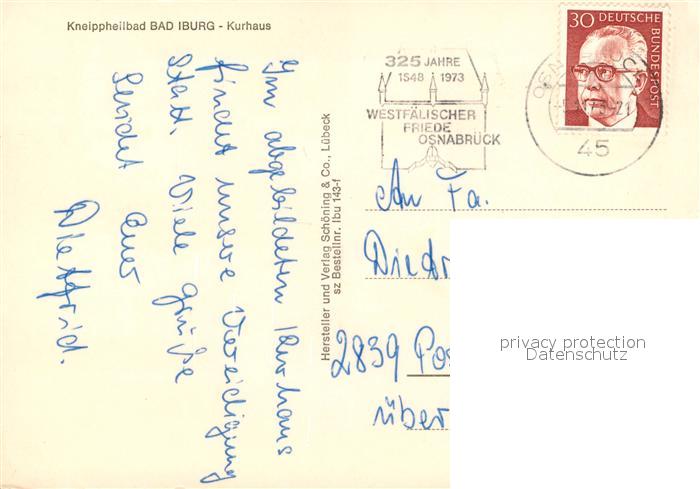 Kneippheilbad BAD IBURG - Kurhaus
Im abgebildeten Kurhaus
findet unsere Vereidigung
statt. Viele Grüße
sendet Euer
Dietfrid.
Hersteller und Verlag Schöning & Co., Lübeck
sz Bestellnr. Ibu 143-f
325 JAHRE
1648 1973
WESTFÄLISCHER
FRIEDE
OSNABRÜCK
30 DEUTSCHE
BUNDESPOST
45
An Fa.
2839
über
privacy protection
Datenschutz